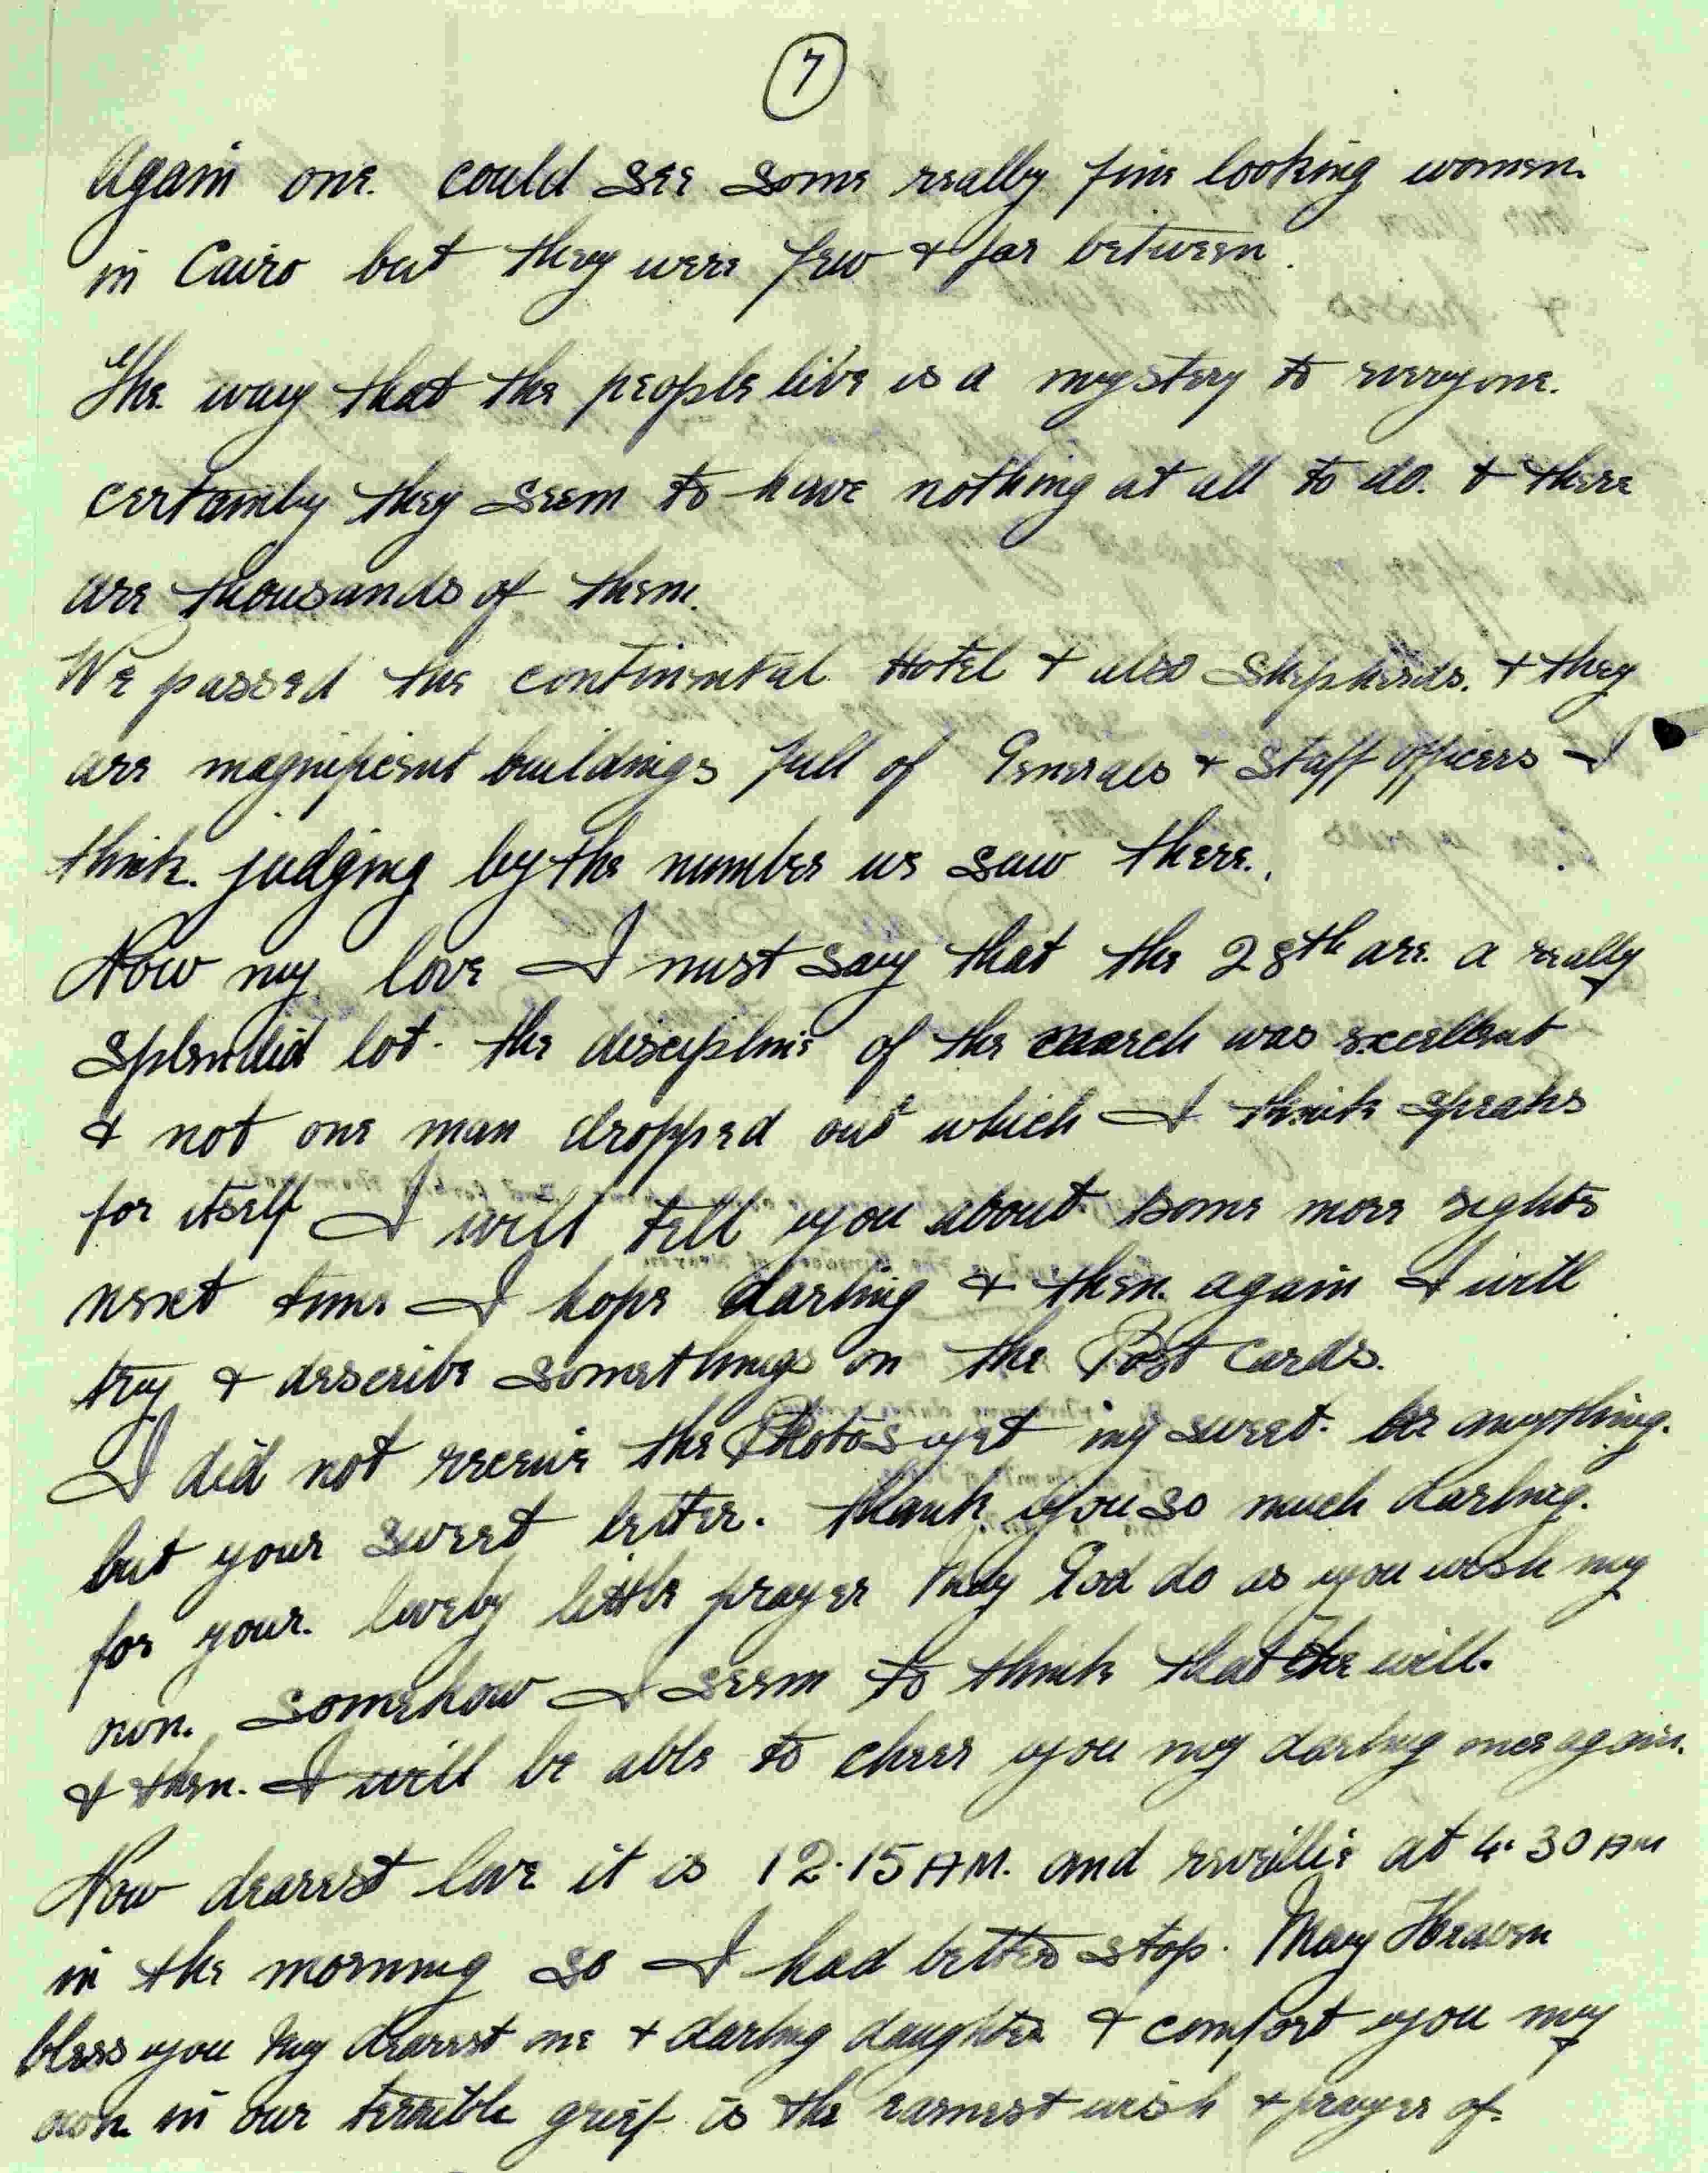 7
Again one. could see some really fine looking women.
in Cairo but they were few & far between.
The way that the people live is a mystery to everyone.
certainly they seem to have nothing at all to do. & there
are thousands of them.
We passed the continental Hotel & also Shepherds. & they
are magnificent buildings full of Generals & Staff officers I
think. judging by the number we saw there.
Now my love I must say that the 28th are a really
splendid lot. the discipline of the march was excellent
& not one man dropped out which I think speaks
for itself I will tell you about some more sights
next time I hope darling & then again I will
try & describe somethings on the Post Cards.
I did not receive the Photos yet my sweet. or anything.
but your sweet letter. thank you so much darling.
for your. lovely little prayer May God do as you wish my
own. somehow I seem to think that He will.
& then. I will be able to cheer you my darling once again.
Now dearest love it is 12.15 AM. and reveillie at 4.30 AM
in the morning so I had better stop. May Heaven
bless you my dearest one & darling daughter & comfort you my
own in our terrible grief is the earnest wish & prayer of.